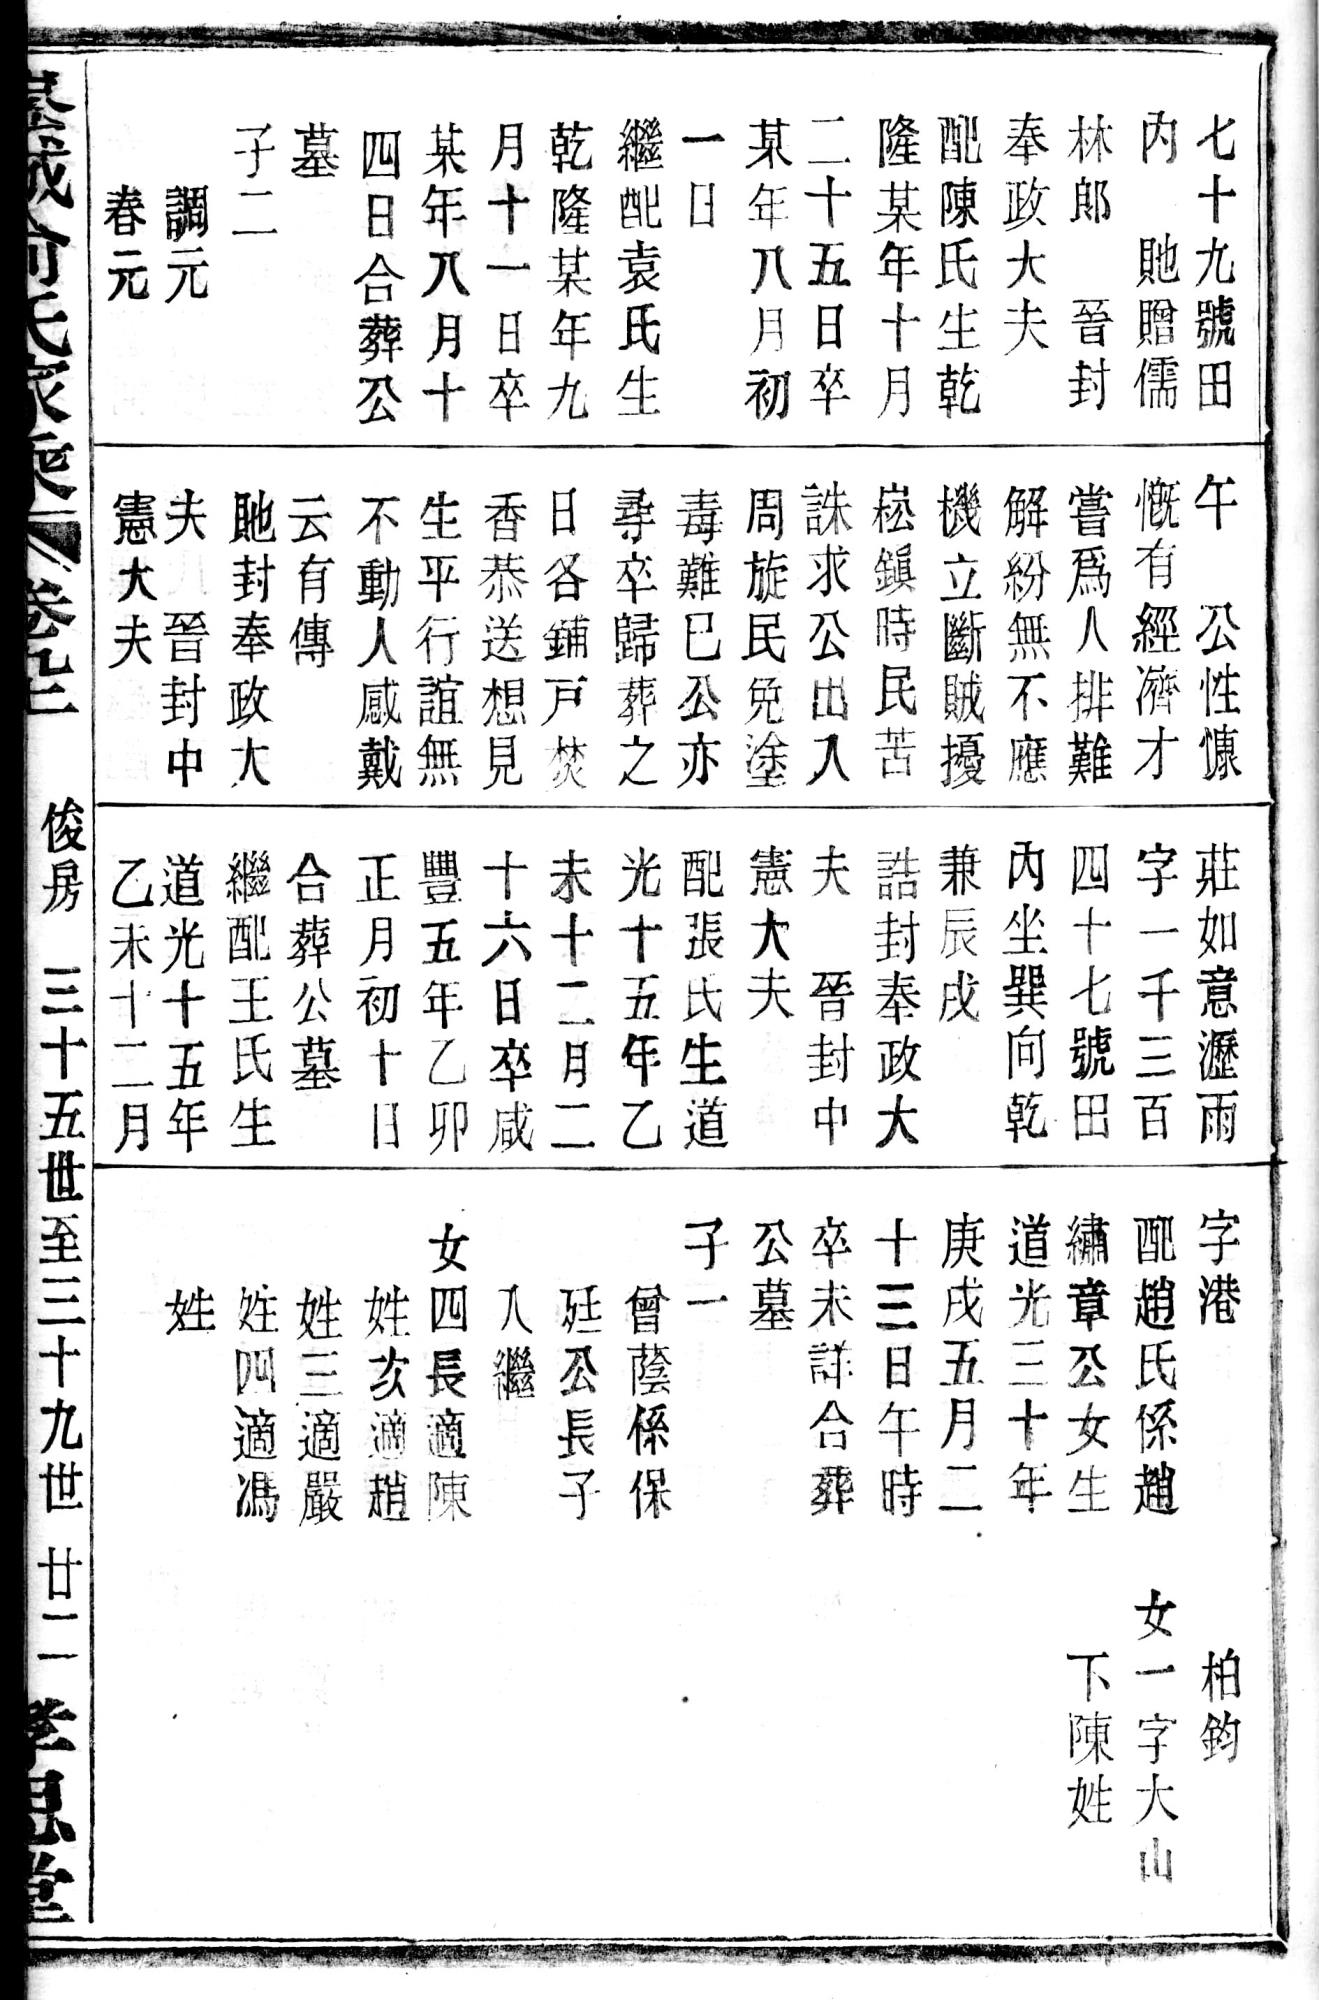 七十九號田
内　貤贈儒
林郎　晉封
奉政大夫
配陳氏生乾
隆某年十月
二十五日卒
某年八月初
一日
繼配袁氏生
乾隆某年九
月十一日卒
某年八月十
四日合葬公
墓
子二
調元
春元
午　公性慷
慨有經濟才
嘗爲人排難
解紛無不應
機立斷賊擾
崧鎭時民苦
誅求公出入
周旋民免塗
毒難已公亦
尋卒歸葬之
日各鋪戸焚
香恭送想見
生平行誼無
不動人感戴
云有傳
貤封奉政大
夫　晉封中
憲大夫
莊如意瀝雨
字一千三百
四十七號田
内坐巽向乾
兼辰戌
誥封奉政大
夫　晉封中
憲大夫
配張氏生道
光十五年乙
未十二月二
十六日卒咸
豐五年乙卯
正月初十日
合葬公墓
繼配王氏生
道光十五年
乙未十二月
字港
配趙氏係趙
繡章公女生
道光三十年
庚戌五月二
十三日午時
卒未詳合葬
公墓
子一
曾蔭係保
廷公長子
入繼
女四長適陳
姓次適趙
姓三適嚴
姓四適馮
姓
柏鈞
女一字大山
下陳姓
俞氏家乘　卷九二　俊房　三十五世至三十九世　廿二　孝思堂